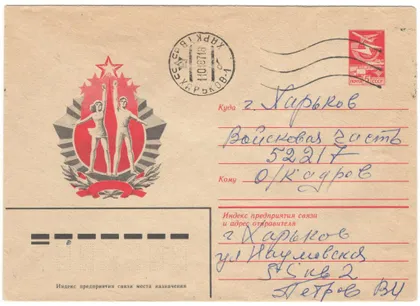 ХАРЬКОВ-1
Куда г. Харьков
Войсковая часть
52217
Кому О/кадров
Индекс предприятия связи
и адрес отправителя
г. Харьков
ул Наумовская
кв 2
Петров ВИ
Индекс предприятия связи места назначения